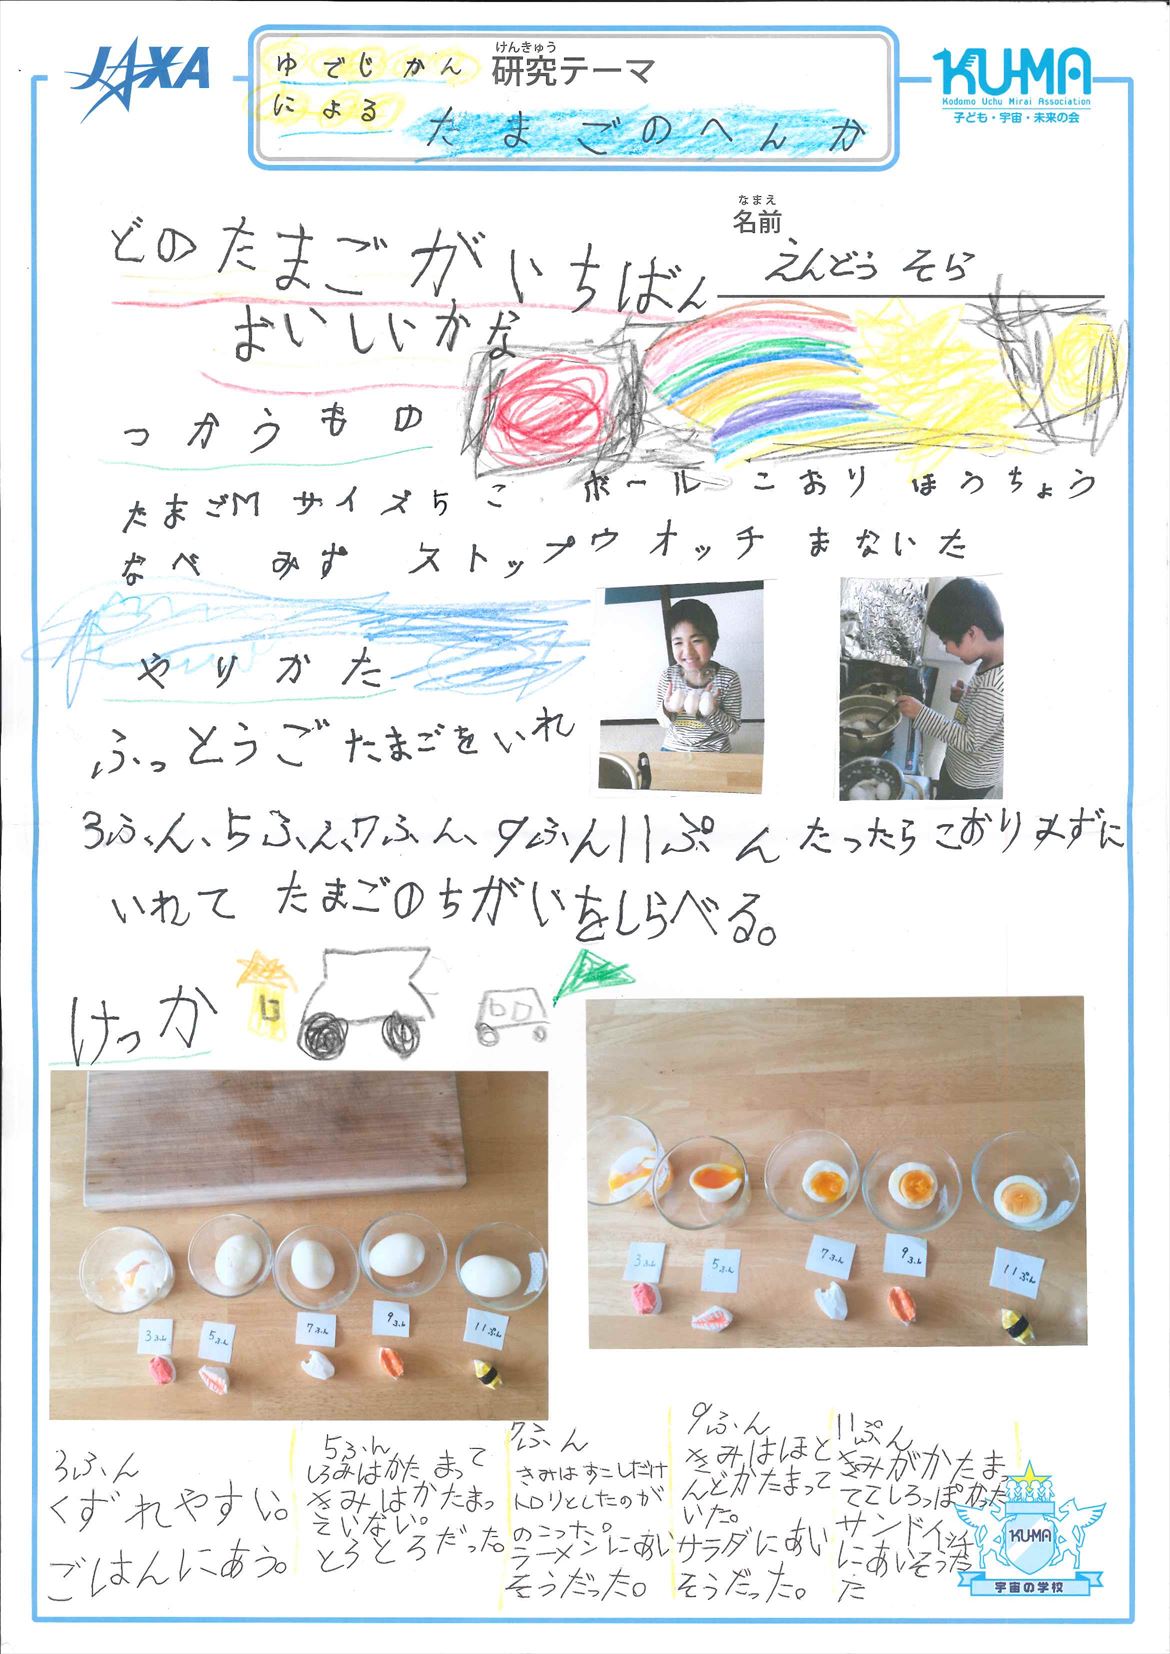 JAXA
ゆでじかん
にょる
けんきゅう
研究テーマ
たまごのへんか
KU-MA
Kodomo Uchu Mirai Association
子ども・宇宙・未来の会
なまえ
名前
えんどう そら
どのたまごがいちばん
おいしいかな
つかうもの
たまごM サイズ5こ ボール こおり ほうちょう
なべ みず ストップウオッチ まないた
やりかた
ふっとうご たまごをいれ
3ふん、5ふん、7ふん、9ふん11ぷん たったらこおりみずに
いれて たまごのちがいをしらべる。
けっか
3ふん
5ふん
7ふん
9ふん
11ぷん
3ふん
5ふん
7ふん
9ふん
11ぷん
3ふん
くずれやすい。
ごはんにあう。
5ふん
しろみはかたまって
きみはかたまっ
ていない。
とろとろだった。
7ふん
きみはすこしだけ
トロリとしたのが
のこった。
ラーメンにあい
そうだった。
9ふん
きみはほと
んどかたまって
いた。
サラダにあい
そうだった。
11ぷん
きみがかたまっ
ててしろっぽかった
サンドイッチ
にあいそうだっ
た
KU-MA
宇宙の学校